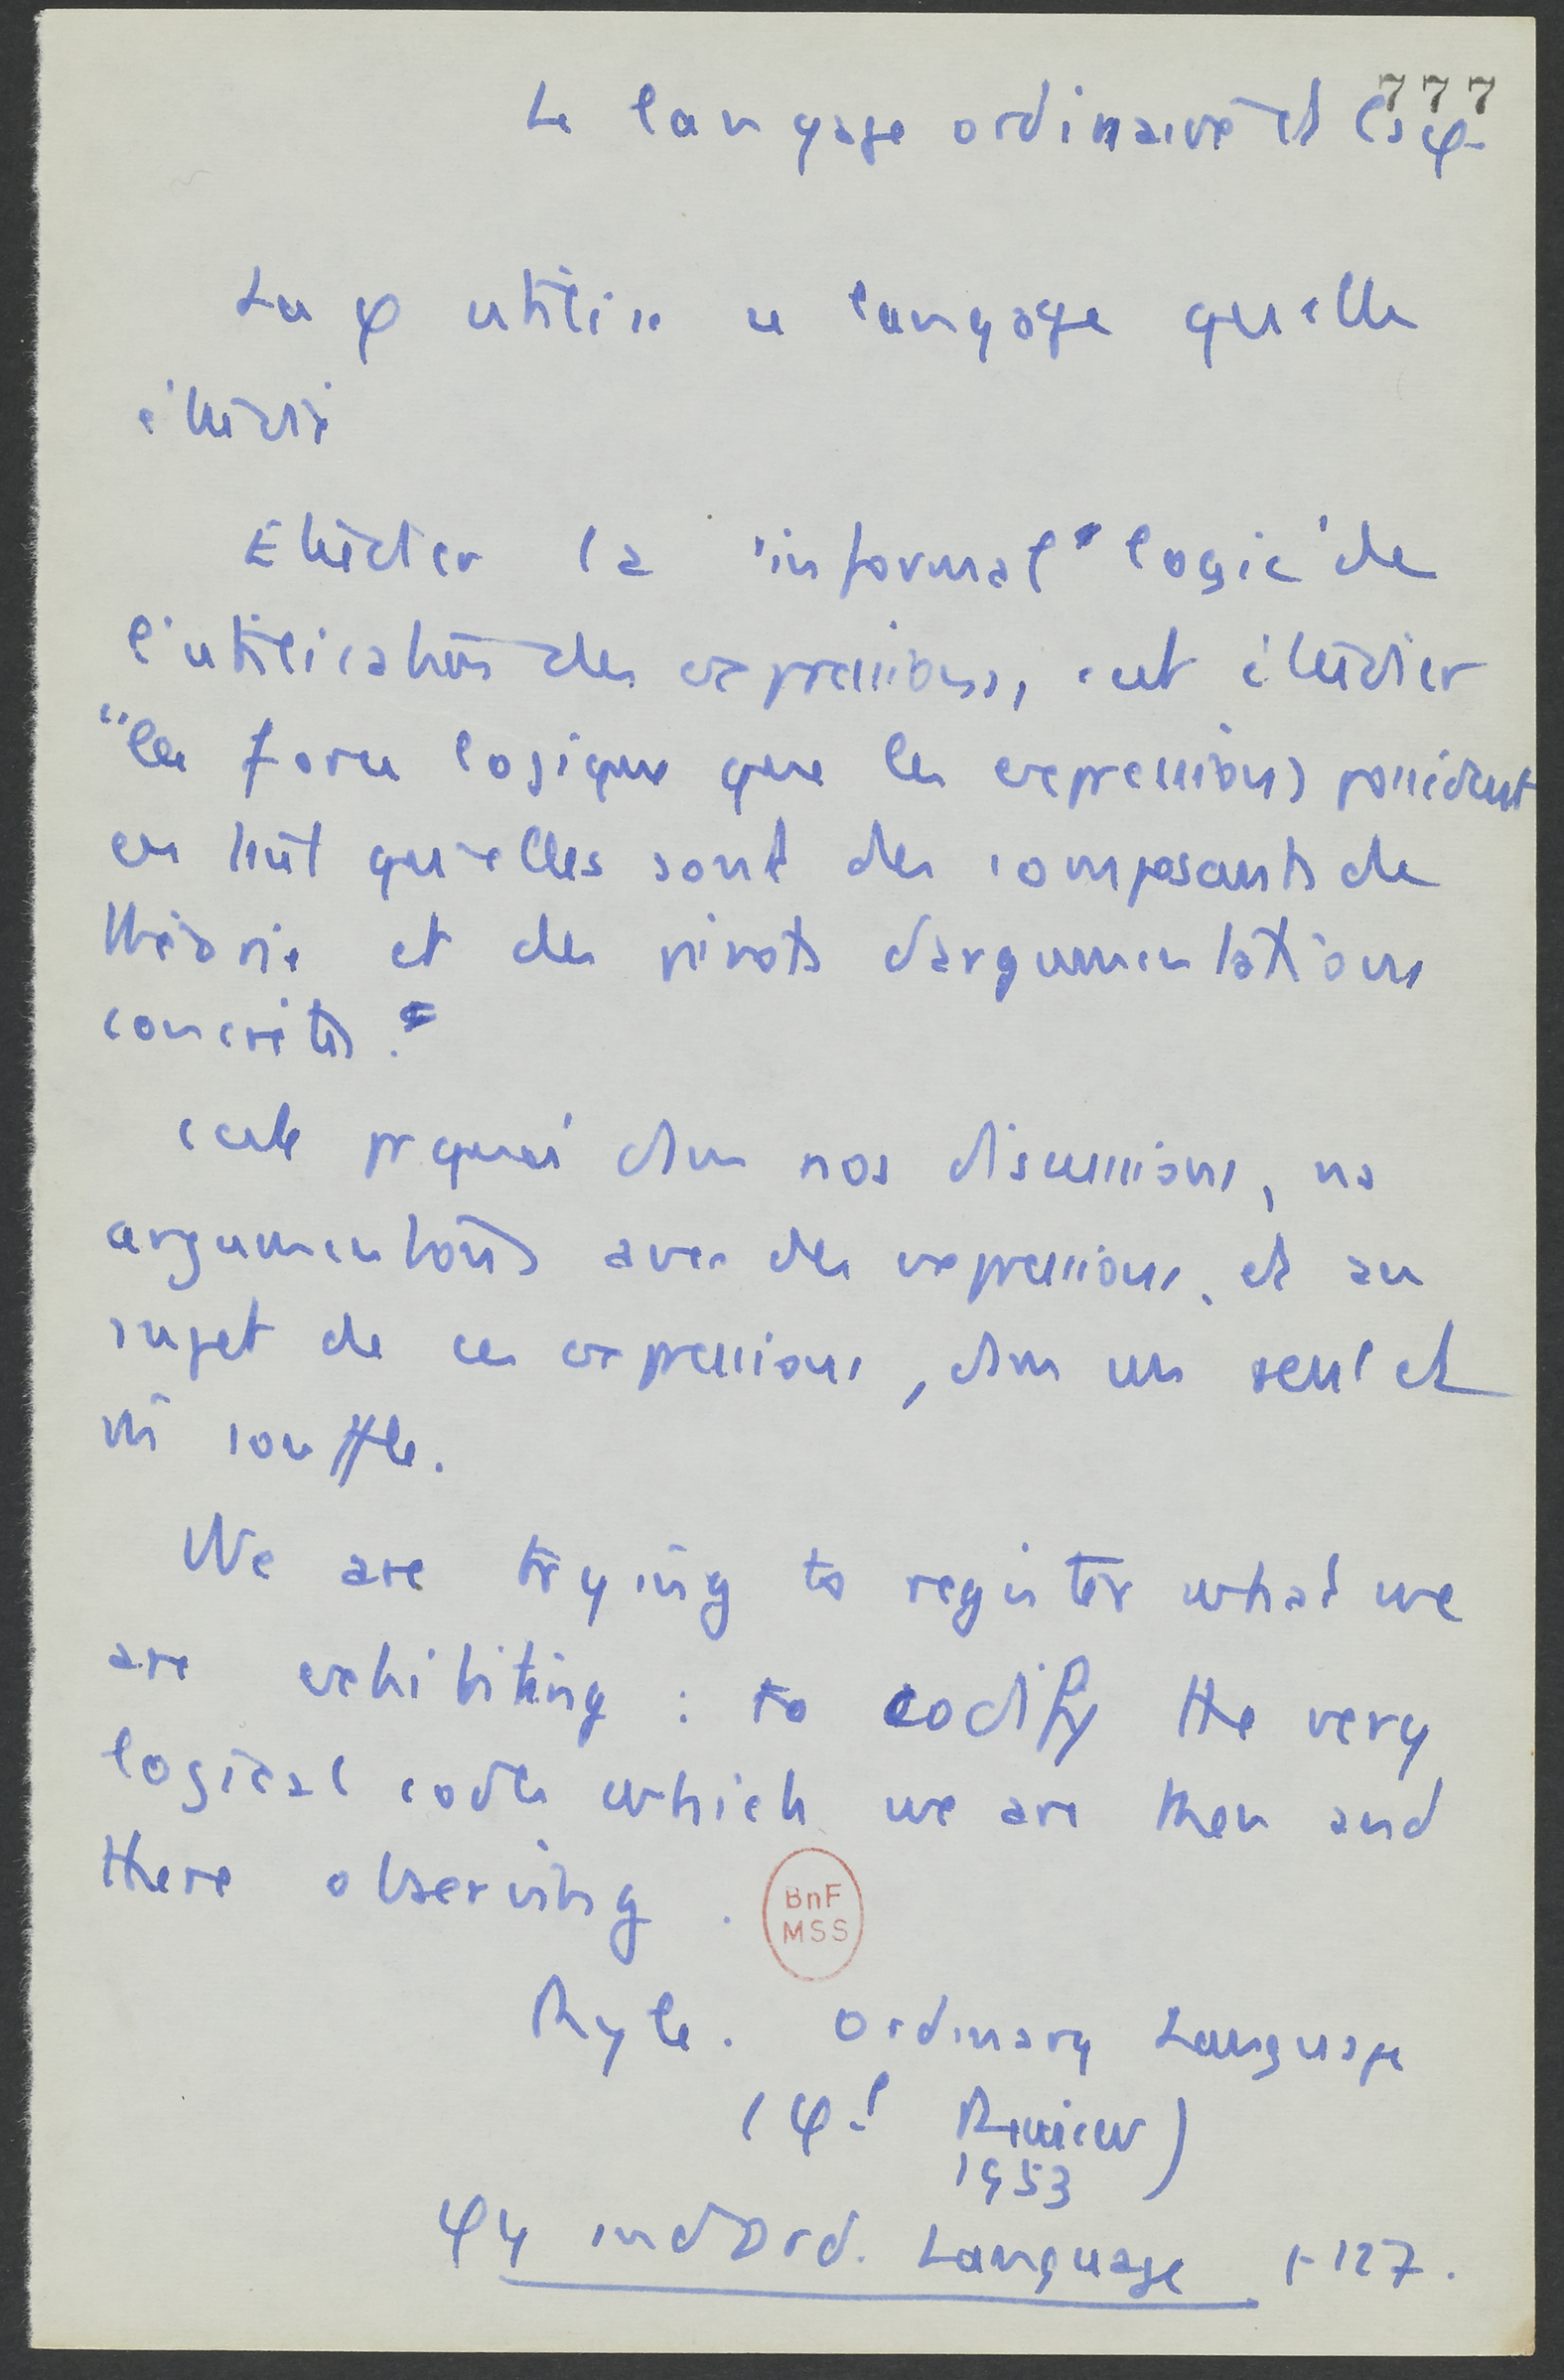 777
Le langage ordinaire et la φ.
La φ utilise le langage qu'elle
étudie
Etudier la "informal logic" de
l'utilisation des expressions, c'est étudier
"les forces logiques que les expressions possèdent
en tant qu'elles sont des composants de
théorie et des pivots d'argumentations
concrètes."
C'est pquoi dans nos discussions, ns
argumentons avec des expressions, et au
sujet de ces expressions, dans un seul et
m̂ souffle.
We are trying to register what we
are exhibiting : to codify the very
logical codes which we are then and
there observing.
BnF
MSS
Ryle. Ordinary Language
(φ.l Review)
1953
φy and Ord. Language p. 127.